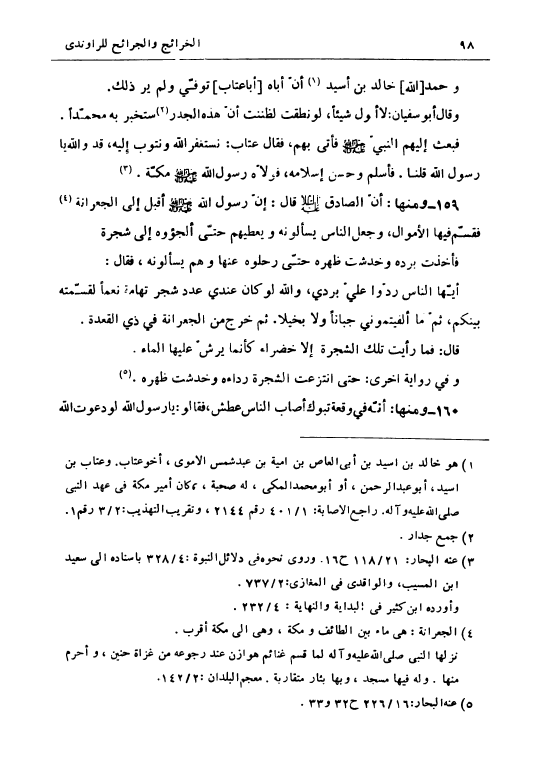 ٩٨ الخرائج والجرائح للراوندى
و حمد[الله] خالد بن أسيد (١) أنّ أباه [أباعتاب] توفّي ولم ير ذلك.
وقال أبوسفيان: لا أقول شيئاً، لو نطقت لظننت أنّ هذه الجدر(٢) ستخبر به محمّداً .
فبعث إليهم النبيّ ﷺ فأتى بهم، فقال عتاب: نستغفر الله ونتوب إليه، قد والله يا
رسول الله قلنا . فأسلم وحسن إسلامه، فولاّه رسول الله ﷺ مكّة . (٣)
١٥٩ـ ومنها: أنّ الصادق عليه السلام قال : إنّ رسول الله ﷺ أقبل إلى الجعرانة (٤)
فقسّم فيها الأموال، وجعل الناس يسألونه و يعطيهم حتّى ألجؤوه إلى شجرة
فأخذت برده وخدشت ظهره حتّى رحلوه عنها و هم يسألونه ، فقال :
أيّها الناس ردّوا عليّ بردي، والله لو كان عندي عدد شجر تهامة نعماً لقسّمته
بينكم، ثمّ ما ألفيتموني جباناً ولا بخيلا. ثم خرج من الجعرانة في ذي القعدة .
قال: فما رأيت تلك الشجرة إلا خضراء كأنما يرشّ عليها الماء .
و في رواية اخرى: حتى انتزعت الشجرة رداءه وخدشت ظهره .(٥)
١٦٠ـ ومنها: أنّه في وقعة تبوك أصاب الناس عطش، فقالوا: يا رسول الله لو دعوت الله
١) هو خالد بن اسيد بن أبى العاص بن امية بن عبدشمس الاموى ، أخو عتاب. وعتاب بن
اسيد ، أبو عبدالرحمن ، أو أبو محمد المكى ، له صحبة ، وكان أمير مكة فى عهد النبى
صلى الله عليه وآله. راجع الاصابة: ٤٠١/١ رقم ٢١٤٤ ، وتقريب التهذيب: ٣/٢ رقم١.
٢) جمع جدار .
٣) عنه البحار: ١١٨/٢١ ح١٦. وروى نحوه فى دلائل النبوة :٣٢٨/٤ باسناده الى سعيد
ابن المسيب، والواقدى فى المغازى: ٧٣٧/٢ .
وأورده ابن كثير فى البداية والنهاية : ٢٣٢/٤ .
٤) الجعرانة : هى ماء بين الطائف و مكة ، وهى الى مكة أقرب .
نزلها النبى صلى الله عليه وآله لما قسم غنائم هوازن عند رجوعه من غزاة حنين ، و أحرم
منها . وله فيها مسجد ، وبها بئار متقاربة . معجم البلدان : ١٤٢/٢.
٥) عنه البحار: ٢٢٦/١٦ ح٣٢ و٣٣ .